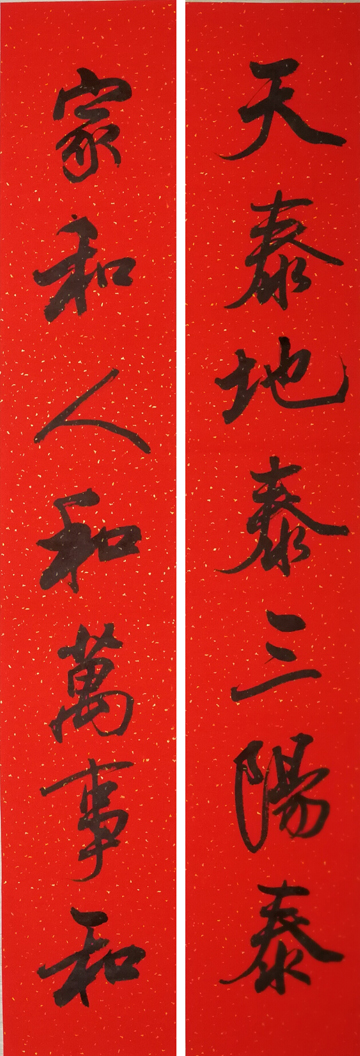 天泰地泰三陽泰
家和人和萬事和